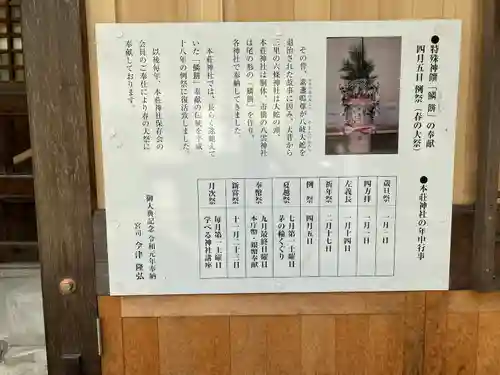 ●特殊神饌「鱗餅」の奉献
四月五日 例祭(春の大祭)
その昔、素盞鳴尊が八岐大蛇を
退治された故事に因み、大昔から
三里の六條神社は大蛇の頭、
本荘神社は胴体、市橋の八雲神社
は尾の形の「鱗餅」を作り、
各神社で奉納してきました。
本荘神社では、長らく途絶えて
いた「鱗餅」奉献の伝統を平成
十八年の例祭に復活致しました。
以後毎年、本荘神社保存会の
会員のご奉仕により春の大祭に
奉献しております。
御大典記念 令和元年奉納
宮司 今津 隆弘
●本荘神社の年中行事
歳旦祭 一月一日
四方拝 一月二日
左義長 一月十四日
祈年祭 二月十七日
例祭 四月五日
夏越祭 七月第一土曜日 茅の輪くぐり
奉幣祭 九月最終日曜日 本庁幣・銀幣奉献
新嘗祭 十一月二十三日
月次祭 毎月第一土曜日 学べる神社講座